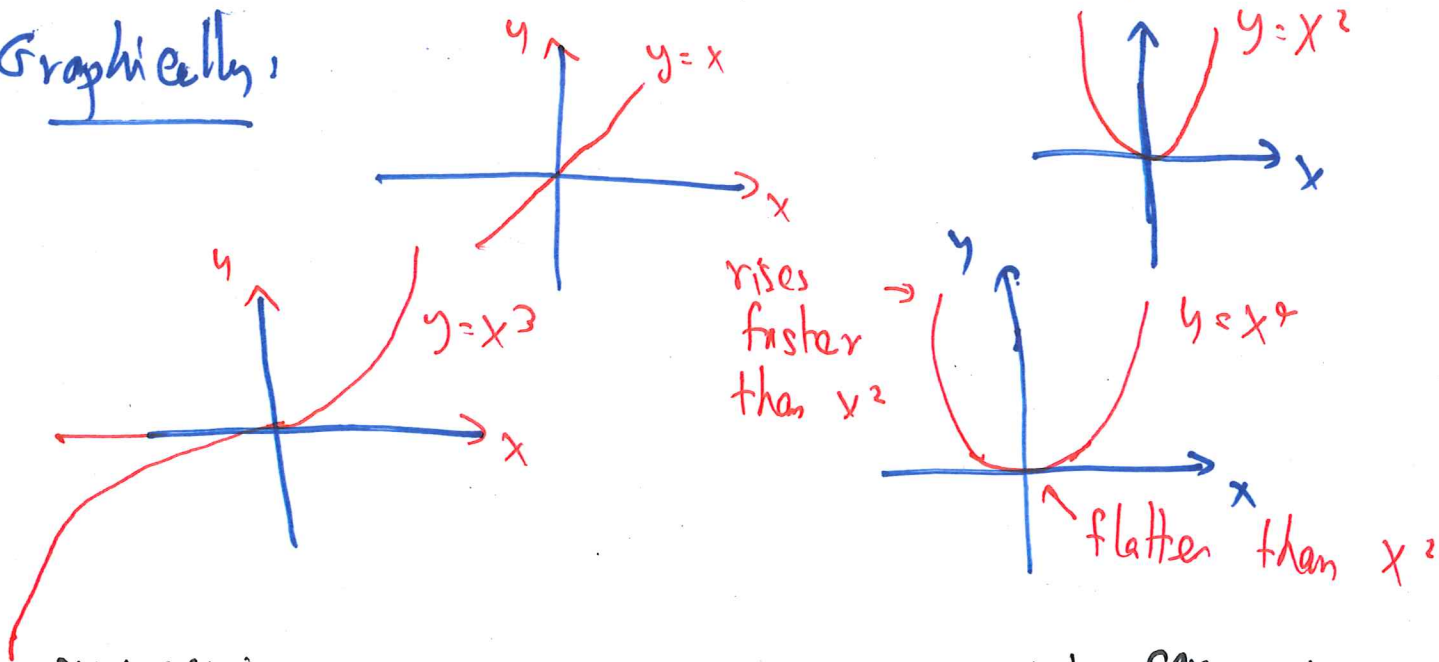 Graphically,
y
y = x
x
y = x²
x
y
y = x³
x
rises
faster
than x²
y
y = x⁴
x
flatter than x²